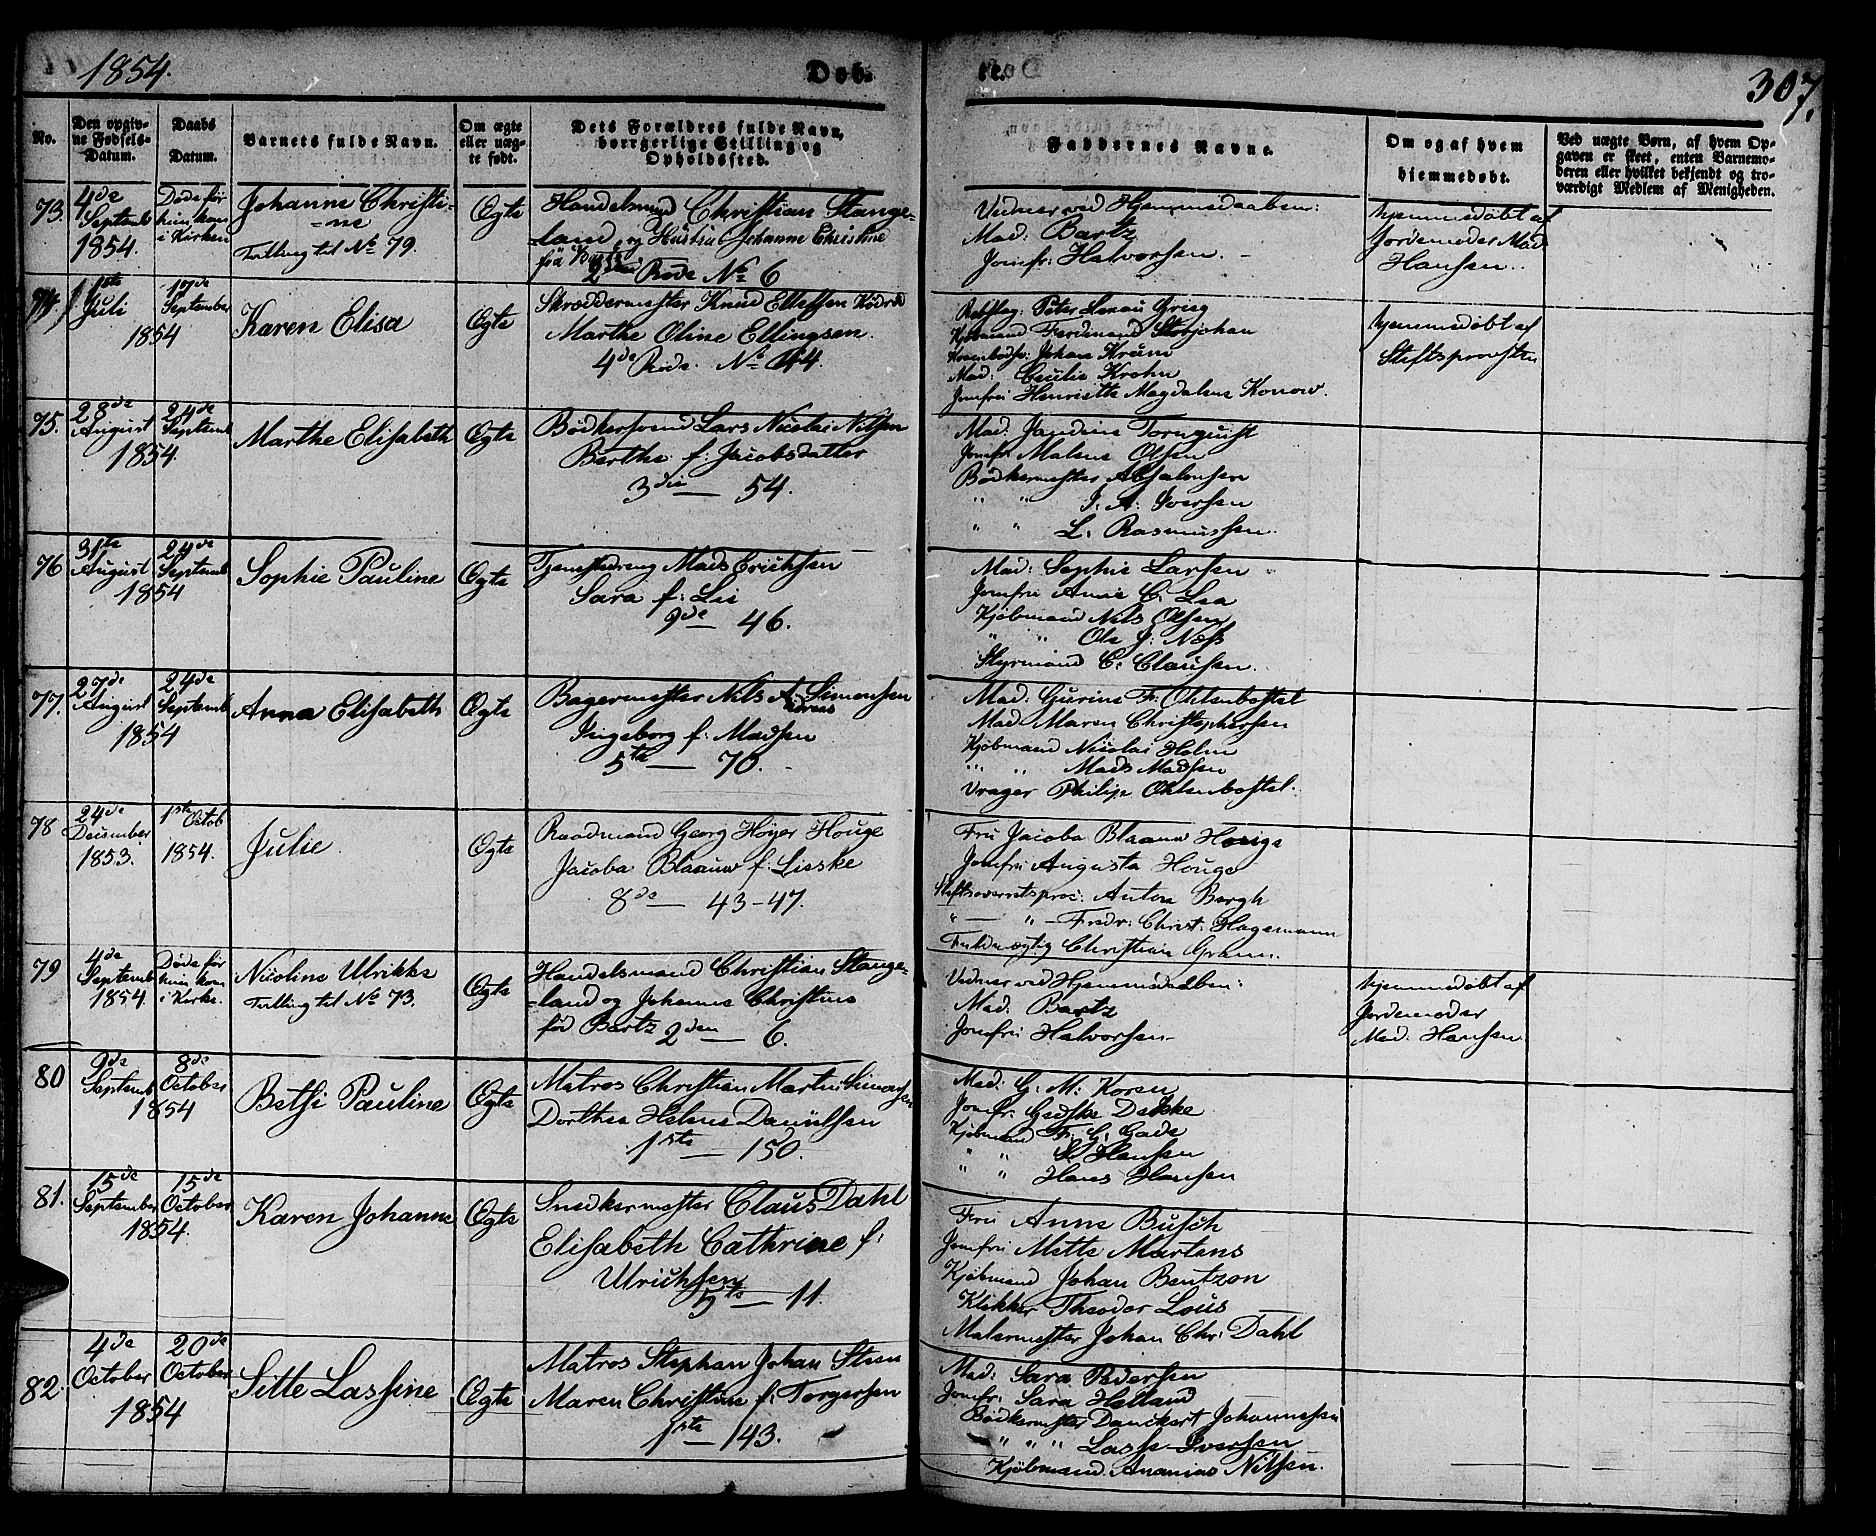 1854.
Døb-
te.
307.
No.
Den opgiv-
ne Fødsels-
Datum.
Daabs
Datum.
Barnets fulde Navn.
Om ægte
eller uæg-
te født.
Dets Forældres fulde Navn,
borgerlige Stilling og
Opholdssted.
Faddernes Navne.
Om og af hvem
hjemmedøbt.
Ved uægte Børn, af hvem Op-
gaven er skeet, enten Barnemo-
deren eller hvilket bekjendt og tro-
værdigt Medlem af Menigheden.
73.
4de
Septemb
1854.
Døde før
hun kom
i Kirken
Johanne Christi-
=ne
Tvilling til No 79.
Ægte
Handelsmand Christian Stange-
=land og Hustru Johanne Christine
fød Bartz
2den Rode No 6
Vidner ved Hjemmedaaben:
Mad: Bartz
Jomfr: Halvorsen.
hjemmedøbt af
Jordemoder Mad
Hansen.
74
1ste
Juli
1854
17de
September
Karen Elisa
Ægte
Skræddermester Knud Ellefsen
Marthe Oline Ellingsen.
4de Rode. No 44.
Peter Grieg
Kjøbmand Ferdinand Støtjohan
Johan Krüm
Mad: Cecilie Krohn
Jomfru Henriette Magdalene Konow.
hjemmedøbt af
Stiftsprovsten
75.
28de
August
1854.
24de
Septemb
Marthe Elisabeth
Ægte
Bødkersvend Lars Nicolai Nilsen
Berthe f: Jacobsdatter
3die — 54.
Mad: Jandine Tornquist
Jomfr Malene Olsen
Bødkermester Absalonsen
" " I. A. Iversen
" " L. Rasmussen.
76
31te
August
1854
24de
Septemb
Sophie Pauline
Ægte
Tjenestedreng Mads Erichsen
Sara f: Lie
9de — 46.
Mad: Sophie Larsen
Jomfru Anne C. Lea
Kjøbmand Nils Olsen
" " Ole J. Næss
Styrmand C. Clausen.
77.
27de
August
1854
24de
Septemb
Anna Elisabeth
Ægte
Bagermester Nils Andreas Simonsen
Ingeborg f: Madsen
5te — 70.
Mad: Gurine F: Ohlenbostel
Mad. Maren Christophersen
Kjøbmand Nicolai Holm
" " Mads Madsen
Vrager Philip Ohlenbostel.
78
24de
December
1853.
1ste Octob
1854.
Julie
Ægte
Raadmand Georg Høyer Houge
Jacoba Blaauw f: Lisske
8de — 43-47.
Fru Jacoba Blaauw Houge
Jomfru Augusta Houge
Stiftsoverretsproc: Anton Bergh
" — " — Fredr: Christ: Hagemann
Fuldmægtig Christian Gram.
79
4de
Septemb
1854.
Døde før
hun kom
i Kirke.
Nicoline Ulrikke
Tvilling til No 73.
Ægte
Handelsmand Christian Stange-
=land og Johanne Christine
fød Bartz 2den — 6.
Vidner ved Hjemmedaaben:
Mad. Bartz
Jomfru Halvorsen
hjemmedøbt af
Jordemoder
Mad: Hansen
80
9de
Septemb
1854
8de
October
Betsi Pauline
Ægte
Matros Christian Martin Simonsen
Dorthea Helene Danielsen
1ste — 150.
Mad: G. M. Koren
Jomfr: Gedske Dekke
Kjøbmand F. G. Gade
" " Hansen
" " Hans Hansen
81.
15de
September
1854.
15de
October
Karen Johanne
Ægte
Snedkermester Claus Dahl
Elisabeth Cathrine f:
Ulrichsen
5te — 11.
Fru Anne Busch
Jomfru Mette Martens
Kjøbmand Johan Bentzon
Klokker Theodor Lous
Malermester Johan Chr: Dahl
82.
4de
October
1854
20de
October
Sitte Lassine
Ægte
Matros Stephan Johan Steen
Maren Christine f: Torgersen
1ste — 143.
Mad: Sara Pedersen
Jomfr: Sara Helland
Bødkermester Danckert Johannesen
" " " Lasse Iversen
Kjøbmand. Ananias Nilsen.